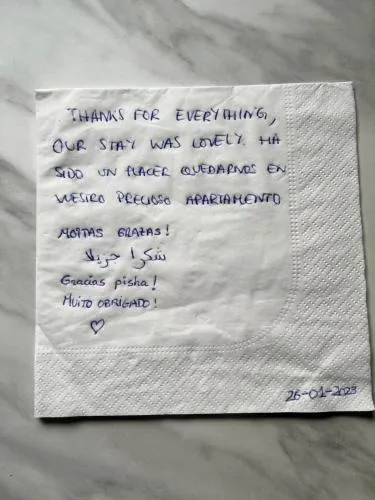 THANKS FOR EVERYTHING,
OUR STAY WAS LOVELY. HA
SIDO UN PLACER QUEDARNOS EN
VUESTRO PRECIOSO APARTAMENTO
MOITAS GRAZAS!
شكرا جزيلا
Gracias pisha!
MUITO OBRIGADO!
26-01-2023